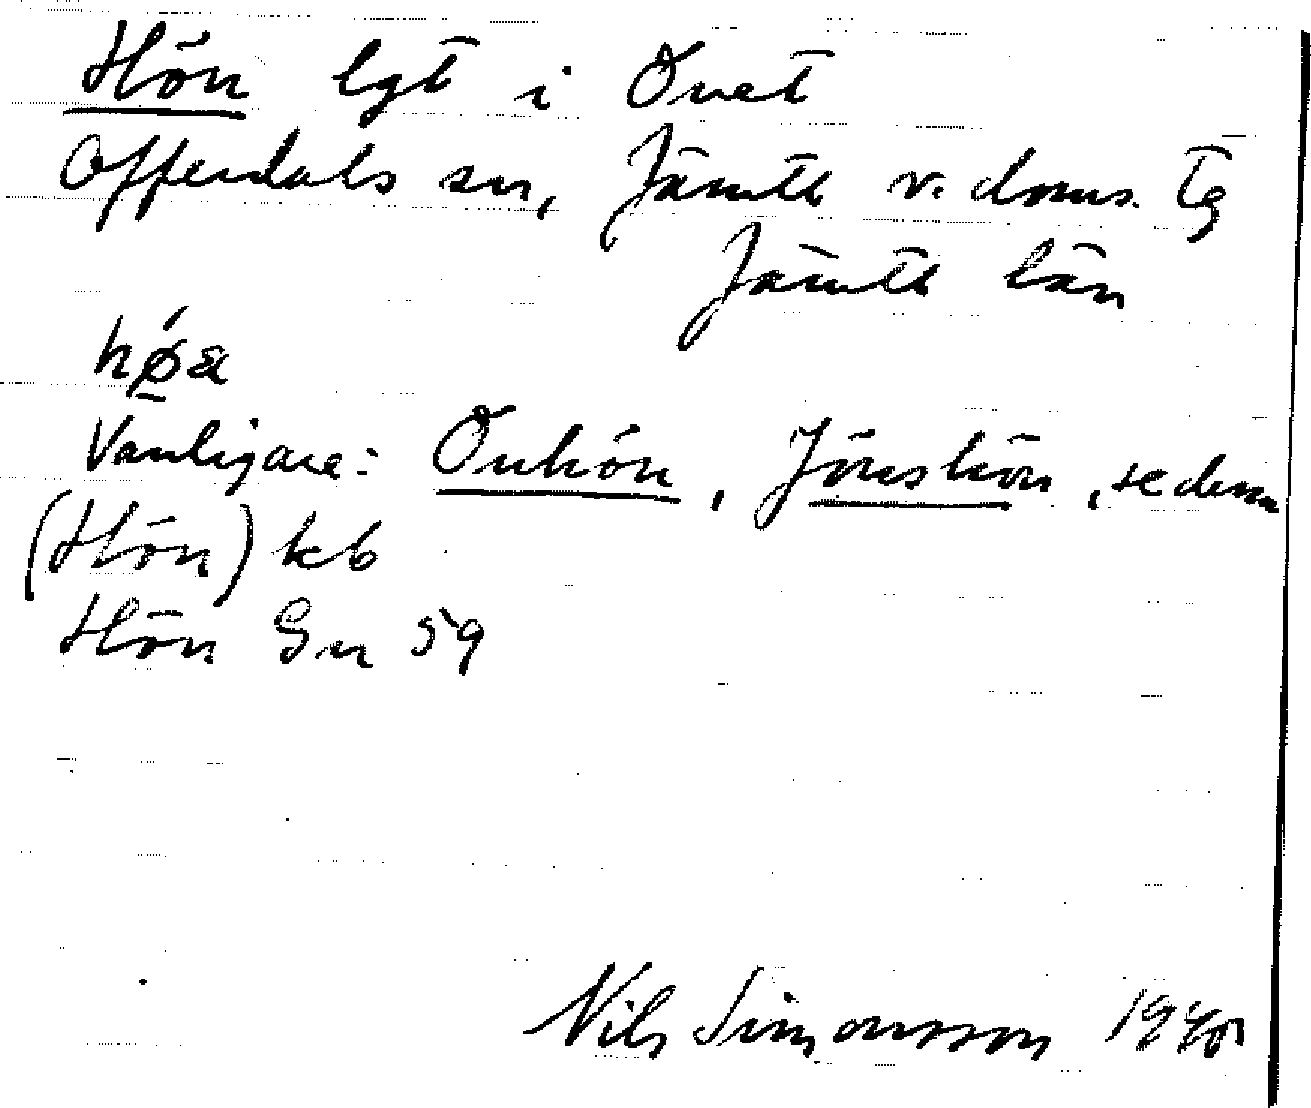 Hön lgt i Övet
Offerdals sn, Jämtl v. doms. tg
Jämtl län
Vanligare: Önhön, Jönshön, se dessa
(Hön) kb
Hön Gn 59
Nils Simonsson